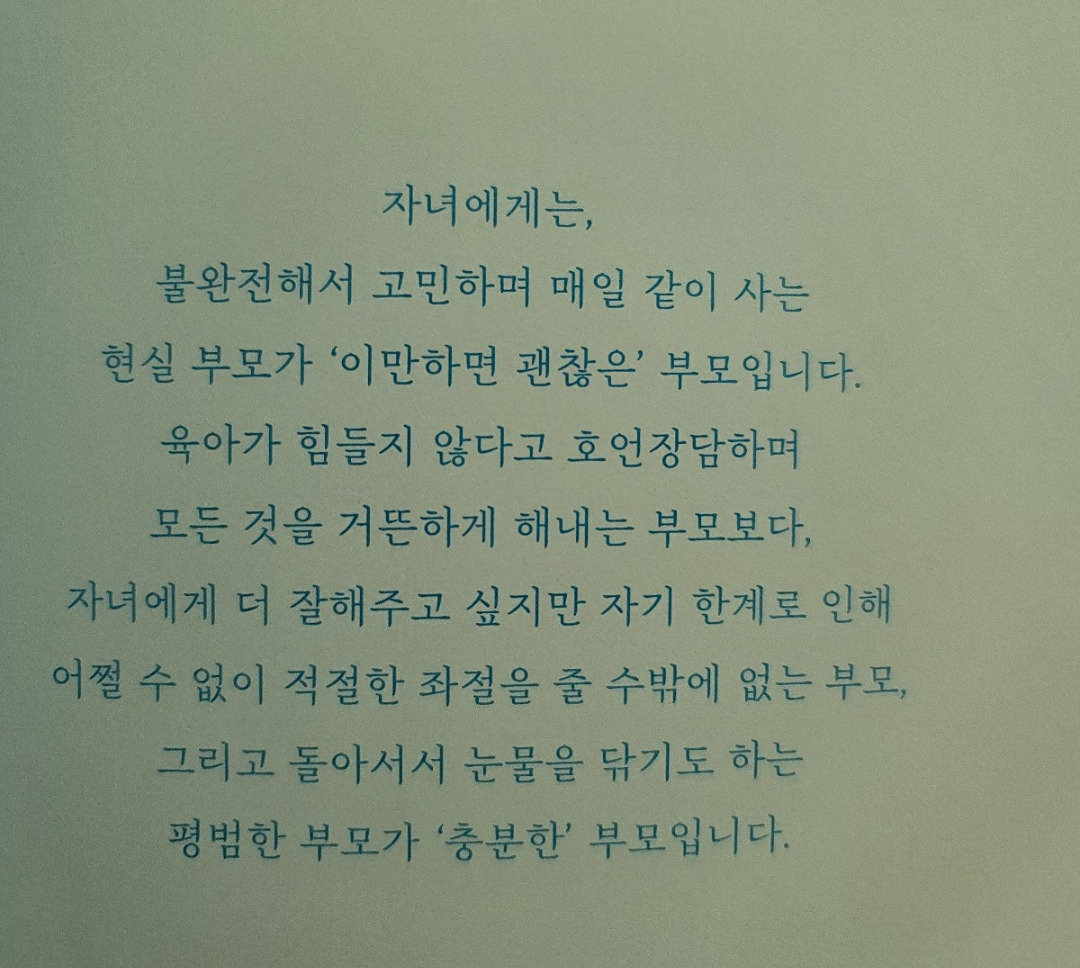 자녀에게는,
불완전해서 고민하며 매일 같이 사는
현실 부모가 ‘이만하면 괜찮은’ 부모입니다.
육아가 힘들지 않다고 호언장담하며
모든 것을 거뜬하게 해내는 부모보다,
자녀에게 더 잘해주고 싶지만 자기 한계로 인해
어쩔 수 없이 적절한 좌절을 줄 수밖에 없는 부모,
그리고 돌아서서 눈물을 닦기도 하는
평범한 부모가 ‘충분한’ 부모입니다.